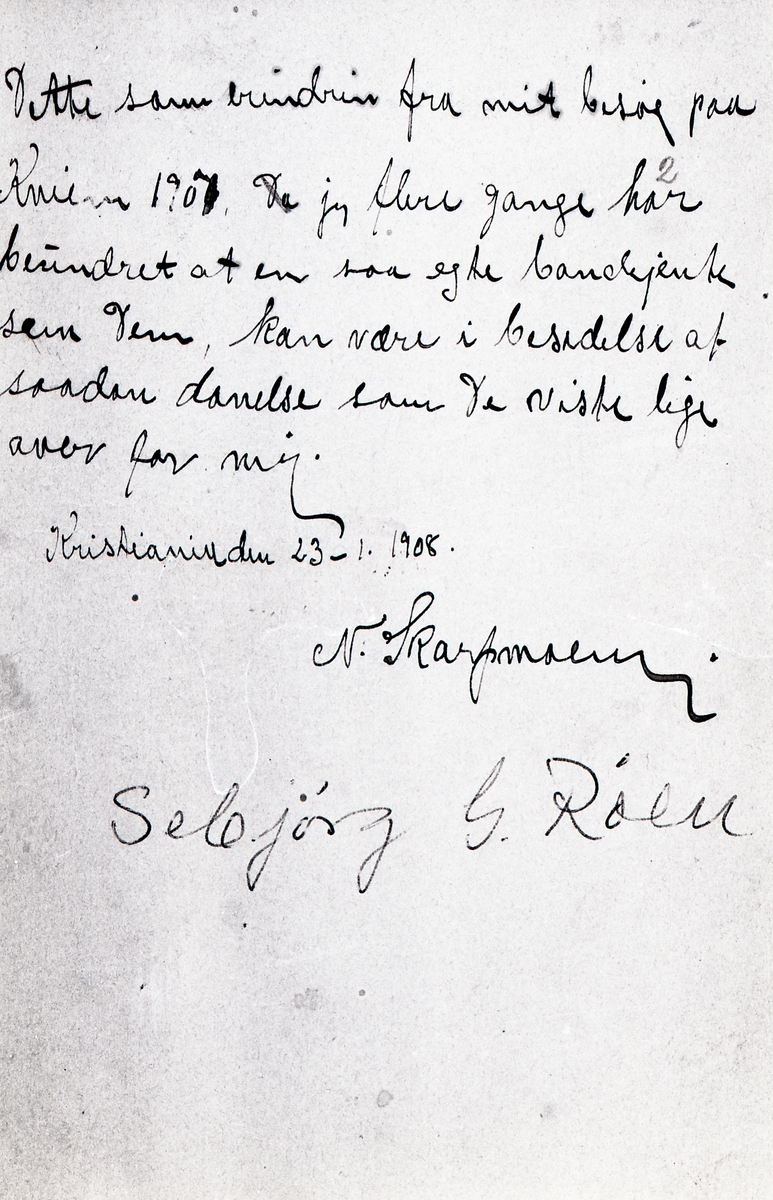 Dette som erindrin fra mit besøg paa
1907. Da jeg flere gange har 2
beundret at en saa egte bondejente
sem Dem, kan være i besidelse af
saadan danelse som De viste lige
over for mig.
Kristiania den 23-1. 1908.
N. Skarpmoen.
Sebjörg G. Röen